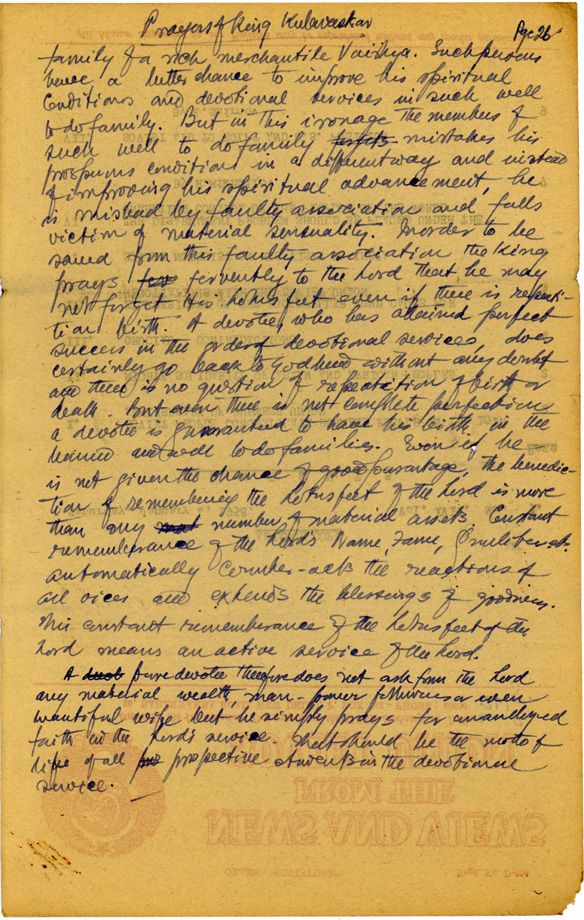 Prayers of King Kulasekhar Page 26
family of a rich merchantile Vaishya. Such persons
have a better chance to improve his spiritual
conditions and devotional services in such well
to do family. But in this iron age the members of
such well to do family mistakes his
prosperous condition in a different way and instead
of improving his spiritual advancement, he
is mislead by faulty association and falls
victim of material sensuality. In order to be
saved from this faulty association the King
prays fervently to the Lord that he may
not forget His lotus feet even if there is repeti-
tion birth. A devotee, who has attained perfect
success in the order of devotional services, does
certainly go back to Godhead without any doubt
and there is no question of repeatation of birth or
death. But even there is not complete perfection
a devotee is guaranteed to have his birth in the
learned and well to do families. Even if he
is not given the chance of good parentage, the benedic-
tion of remembering the lotus feet of the Lord is more
than any number of material assets. Constant
rememberance of the Lord's Name, fame, qualities etc.
automatically counter-acts the reactions of
all vices and extends the blessings of goodness.
This constant rememberance of the lotus feet of the
Lord means an active service of the Lord.
A pure devotee therefore does not ask from the Lord
any material wealth, man-power followers or even
beautiful wife but he simply prays for unalloyed
faith in the Lord's service. That should be the moto of
life of all prospective students in the devotional
service.
NEWS AND VIEWS
FROM THE